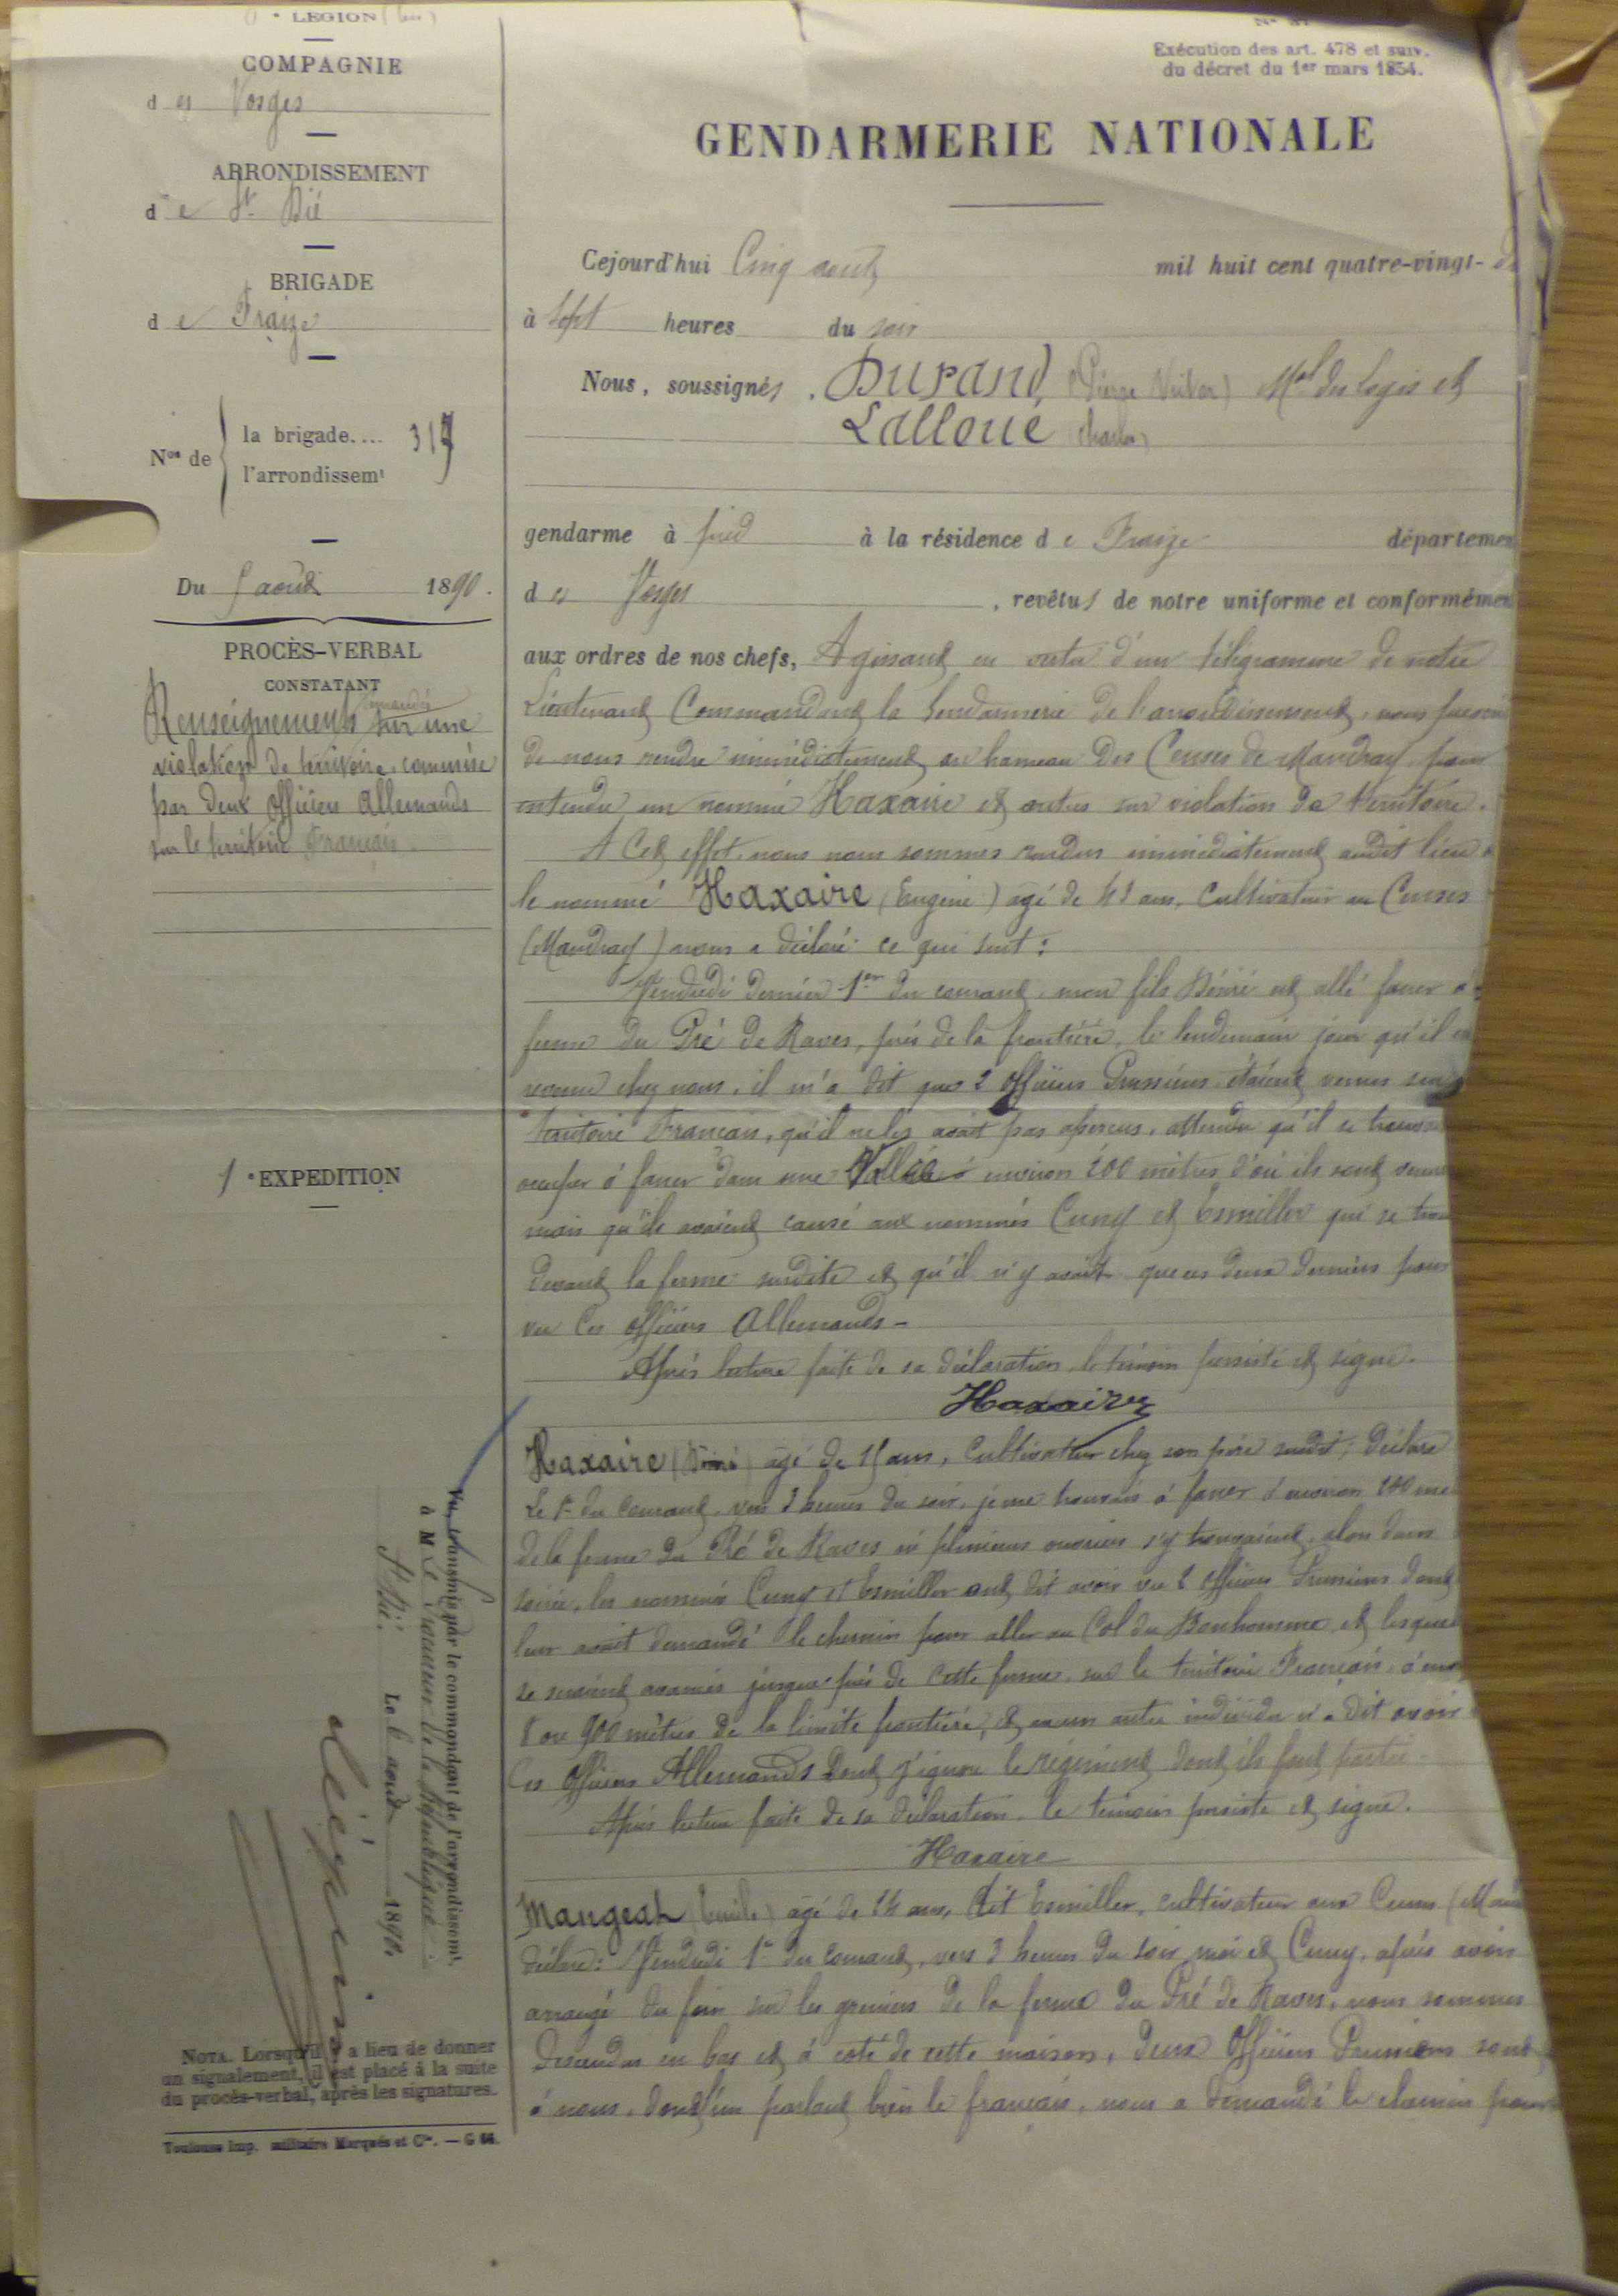 LEGION
COMPAGNIE
des Vosges
ARRONDISSEMENT
de St Dié
BRIGADE
de Fraize
Nos de
la brigade.... 317
l'arrondissemt
Du 5 août 1890.
PROCÈS-VERBAL
CONSTATANT
Renseignements
sur une
violation de territoire, commise
par deux officiers Allemands
sur le territoire Français.
1e EXPEDITION
Vu, transmis par le commandant de l'arrondissemt,
à M. Le Procureur de la République
St Dié, Le 6 août 1890.
NOTA. Lorsqu'il y a lieu de donner
un signalement, il est placé à la suite
du procès-verbal, après les signatures.
Toulouse Imp. militaire Marqués et Cie. — G 66.
Exécution des art. 478 et suiv.
du décret du 1er mars 1854.
GENDARMERIE NATIONALE
Cejourd'hui Cinq août mil huit cent quatre-vingt-
à sept heures du soir
Nous, soussignés, Durand, (Pierre) Mal des logis et
Lalloué (Charles)
gendarme à pied à la résidence de Fraize départemen
des Vosges, revêtus de notre uniforme et conformémen
aux ordres de nos chefs, Agissant en vertu d'un télégramme de notre
Lieutenant Commandant la Gendarmerie de l'arrondissement, nous
de nous rendre immédiatement au hameau Des Censes de Mandray, pour
entendre un nommé Haxaire et autres sur violation de territoire.
A Cet effet, nous nous sommes rendus immédiatement audit lieu
le nommé Haxaire (Eugène) agé de ans, Cultivateur au Censes
(Mandray) nous a déclaré ce qui suit:
Vendredi dernier 1er du courant, mon fils Désiré est allé faner à
ferme du Pré de Raves, près de la frontière, le lendemain jour qu'il
revenu chez nous, il m'a dit que 2 officiers Prussiens étaient venus sur
territoire Français, qu'il ne les avait pas aperçus, attendu qu'il se trouvait
occuper à faner dans une Vallée à environ 200 mètres d'où ils sont venus
mais qu'ils avaient causé aux nommés Cuny et Esmiller qui se
devant la ferme susdite et qu'il n'y avait que ces deux derniers pour
vu Ces officiers Allemands-
Après lecture faite de sa déclaration, le témoin persiste et signe.
Haxaire
Haxaire (Désiré) agé de 15 ans, Cultivateur chez son père susdit, Déclare
Le 1er du Courant, vers 3 heures du soir, je me trouvais à faner à environ 200
de la ferme du Pré de Raves où plusieurs ouvriers s'y trouvaient, alors dans
soirée, les nommés Cuny et Esmiller ont dit avoir vu 2 officiers Prussiens dont
leur avait demandé le chemin pour aller au Col du Bonhomme, et lesquels
se seraient avancés jusque près de Cette ferme, sur le territoire Français, à
8 ou 900 mètres de la limite frontière, et aucun autre individu n'a Dit avoir
Ces Officiers Allemands dont j'ignore le régiment dont ils font partie.
Après lecture faite de sa déclaration, le témoin persiste et signe.
Haxaire
Mangeat (Emile) agé de 24 ans, dit Esmiller, cultivateur aux Censes
déclare: Vendredi 1er du courant, vers 3 heures du soir, moi et Cuny, après avoir
arrangé du foin sur les greniers de la ferme du Pré de Raves, nous sommes
descendus en bas et à coté de cette maison, deux Officiers Prussiens sont
à nous, dont l'un parlant bien le français, nous a demandé le chemin pour